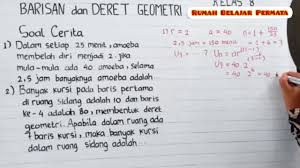 BARISAN dan DERET GEOMETRI
KELAS 8
RUMAH BELAJAR PERMATA
Soal Cerita
1) Dalam setiap 25 menit, amoeba
membelah diri menjadi 2. jika
mula-mula ada 40 amoeba, selama
2,5 jam banyaknya amoeba adalah
2) Banyak kursi pada baris pertama
di ruang sidang adalah 10 dan baris
ke-4 adalah 80, membentuk deret
geometri. Apabila dalam ruang ada
7 baris kursi, maka banyak kursi
dalam ruang sidang adalah
1) r = 2 a = 40
2,5 jam = 150 menit
= 40 . 2